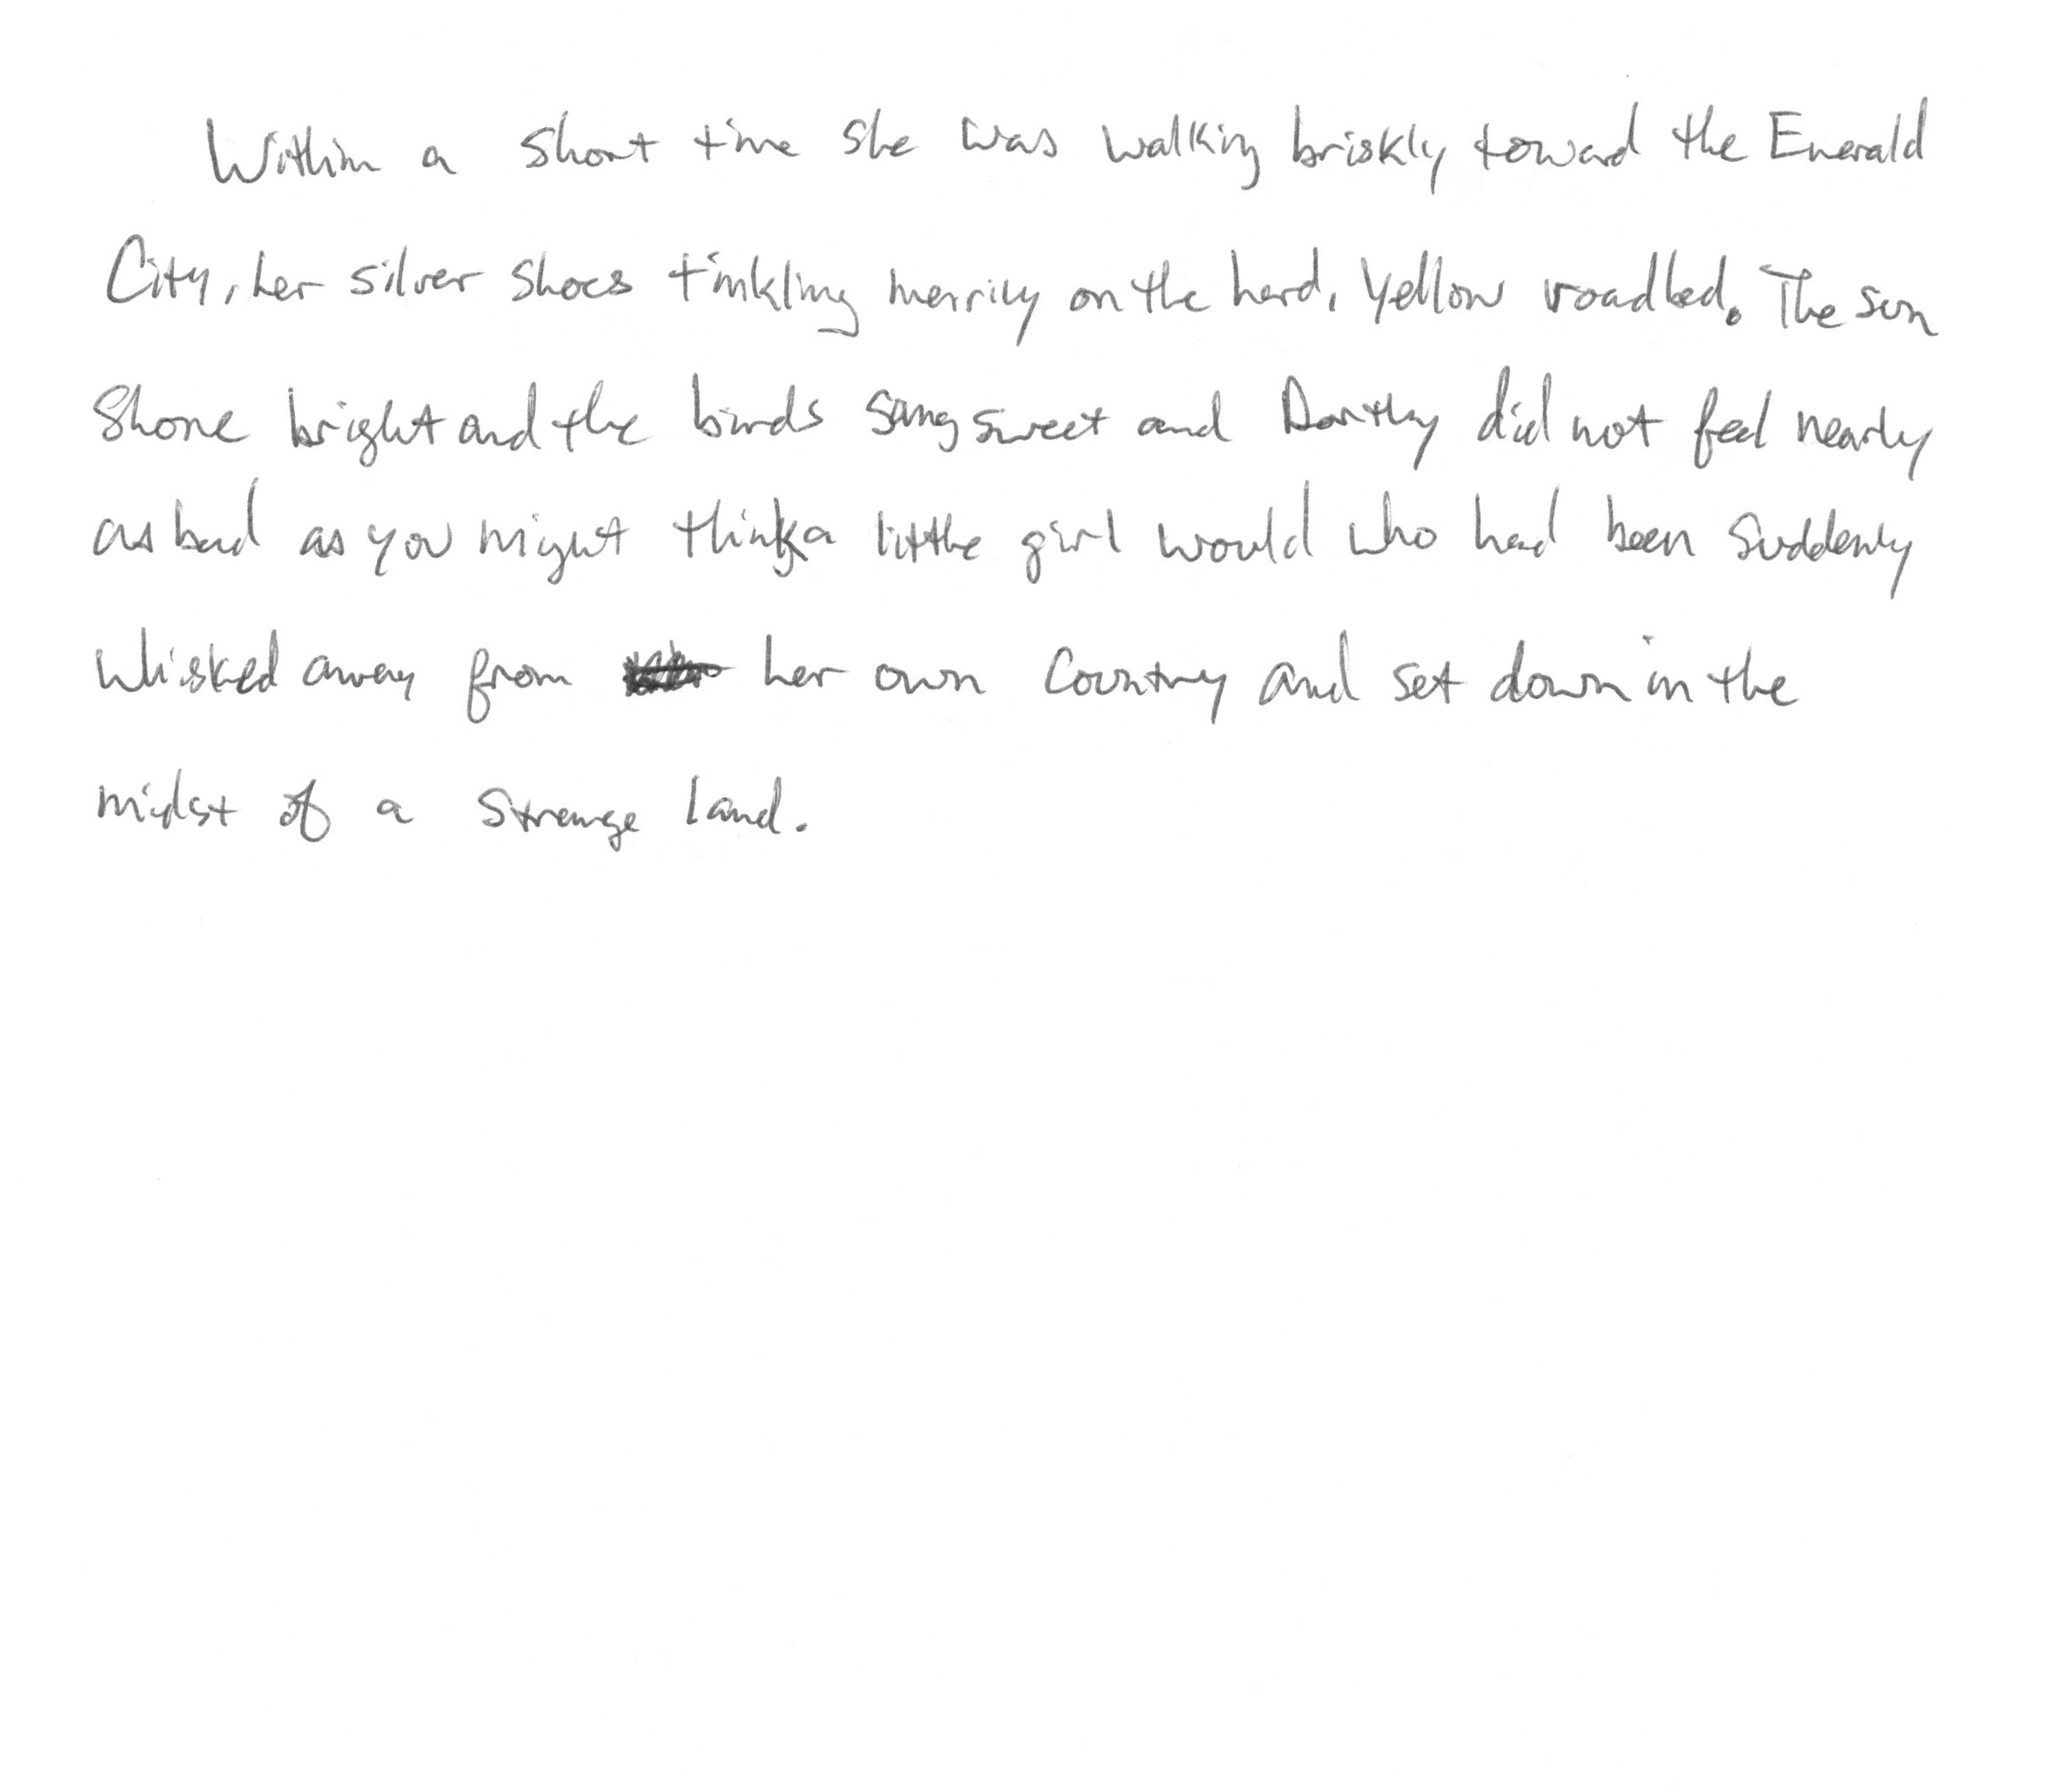 Within a short time she was walking briskly toward the Emerald
City, her silver shoes tinkling merrily on the hard, yellow roadbed. The sun
shone bright and the birds sang sweet and Dorothy did not feel nearly
as bad as you might think a little girl would who had been suddenly
whisked away from her own country and set down in the
midst of a strange land.